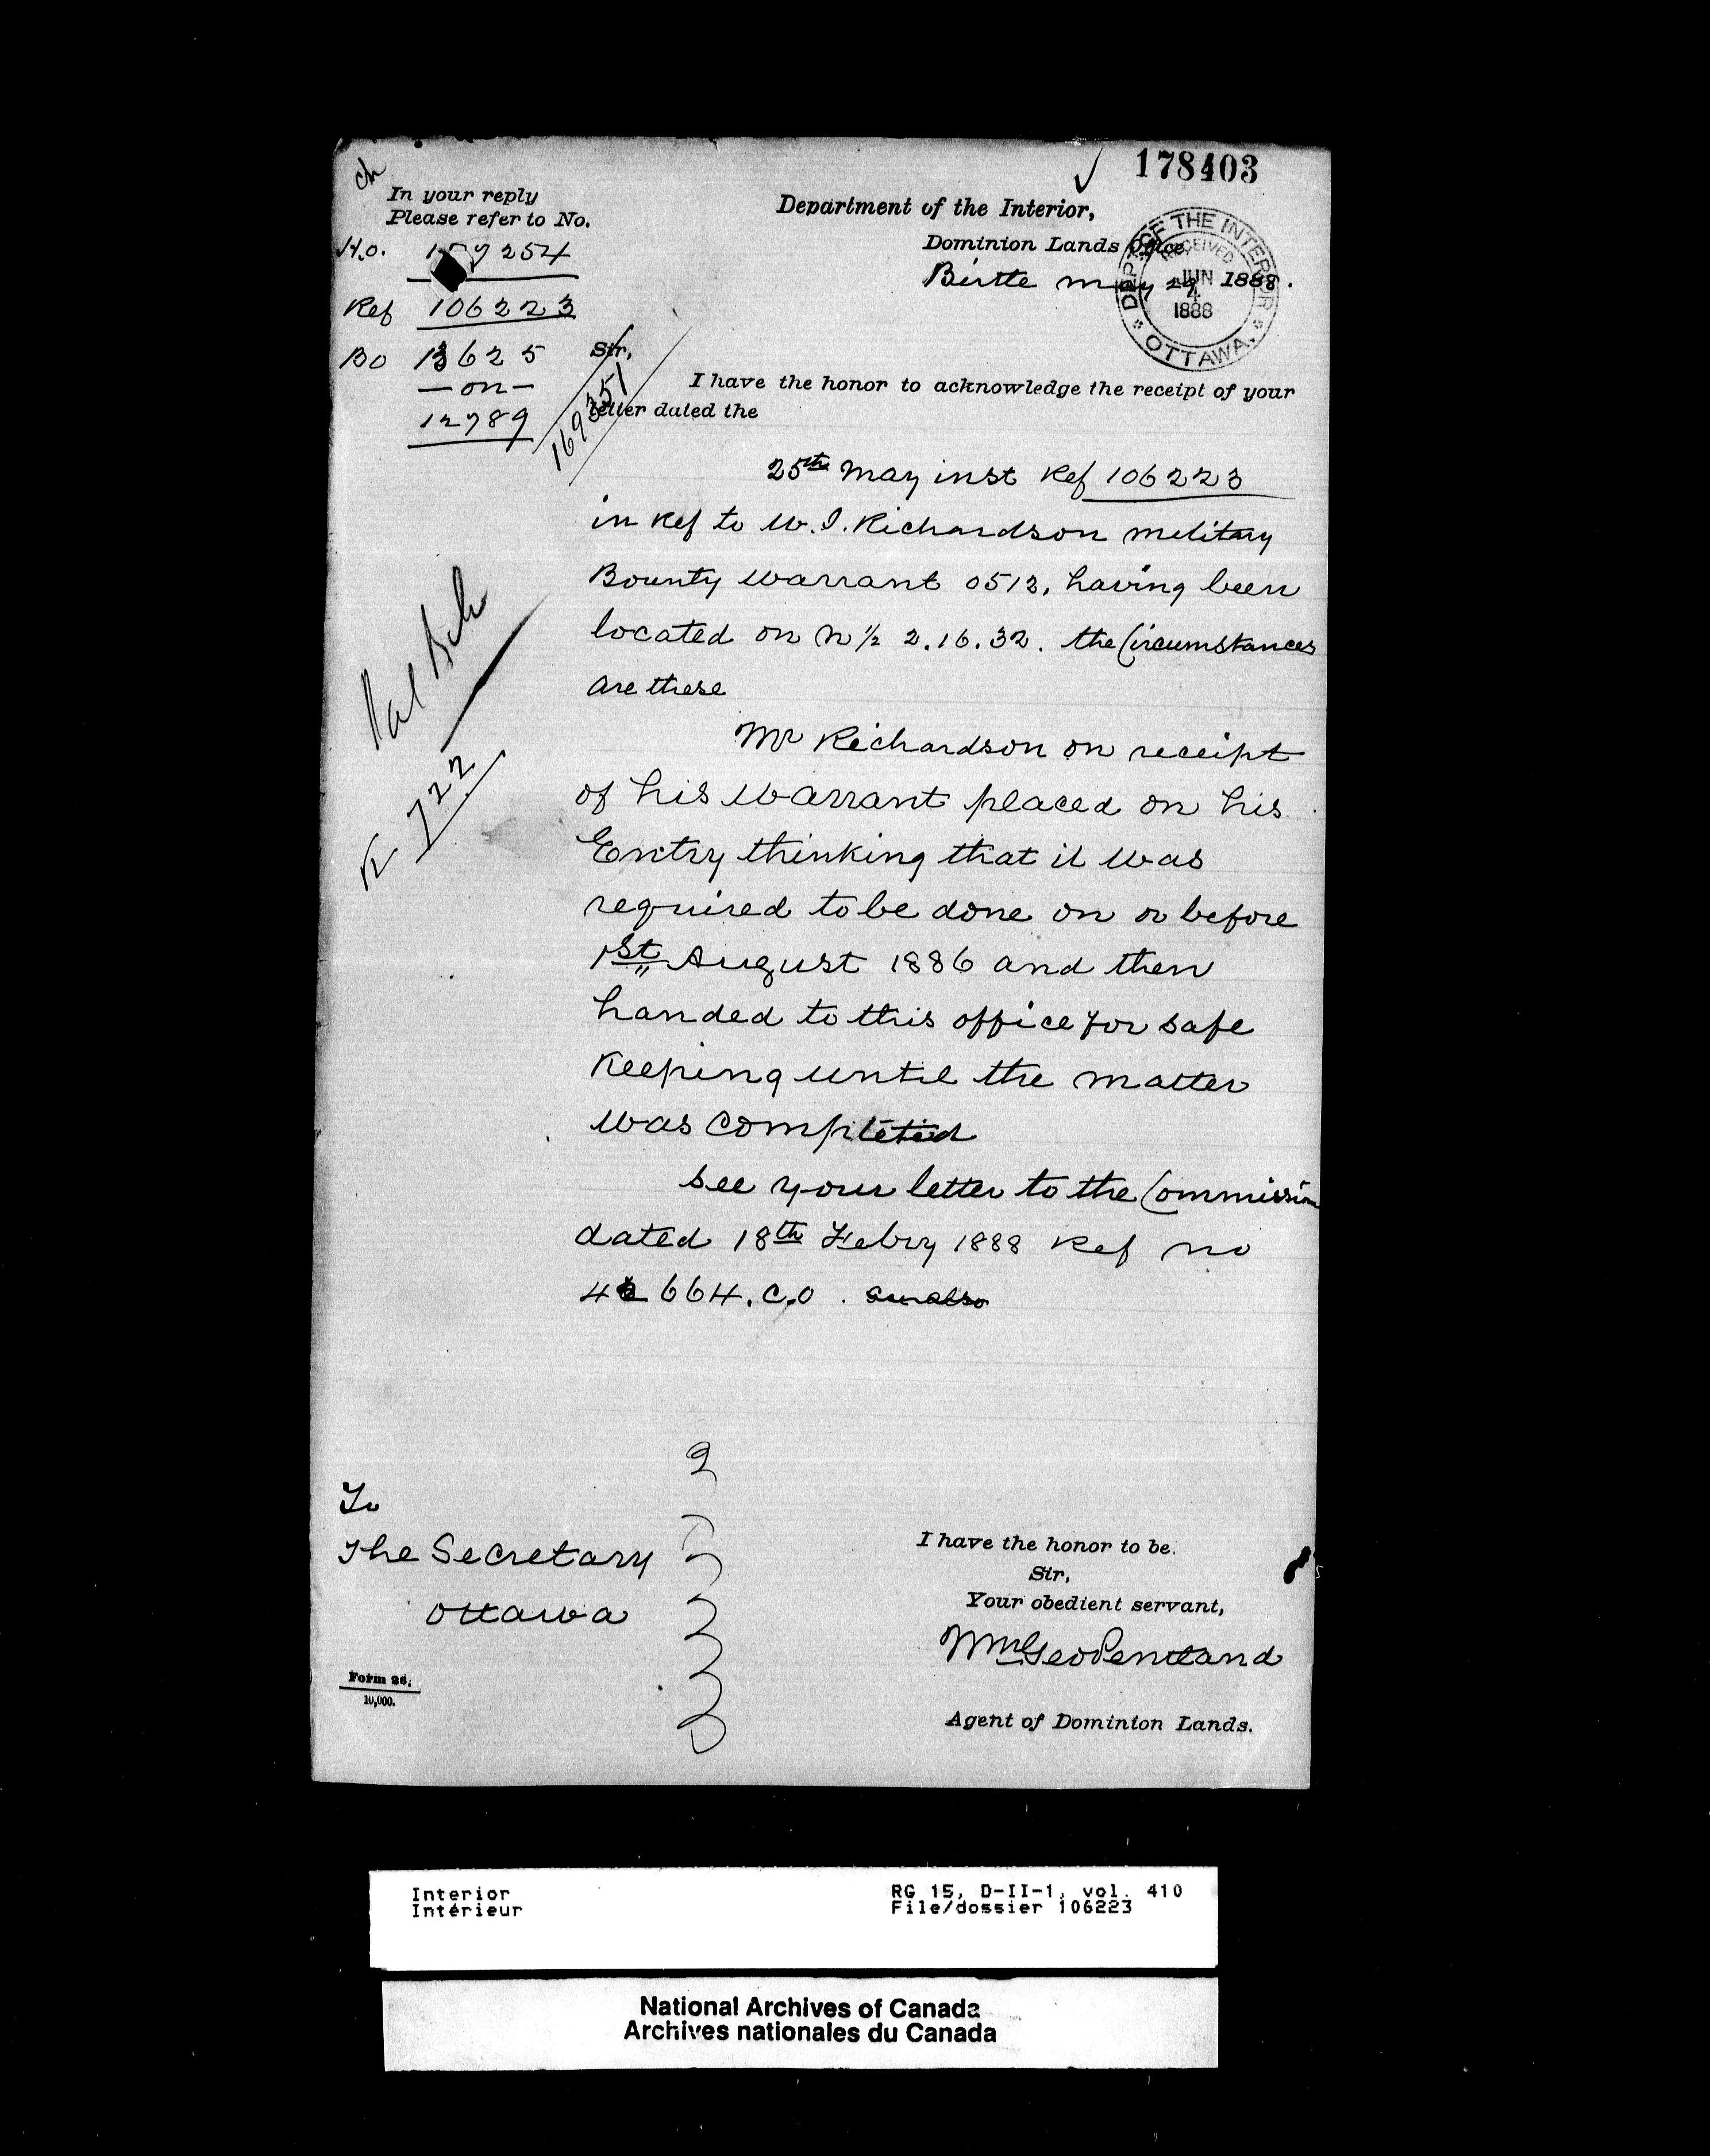 178403
In your reply
Please refer to No.
Department of the Interior,
Dominion Lands Office,
DEPT OF THE INTERIOR
RECEIVED
JUN
4
1888
OTTAWA.
H.O. 254
Birtle may 1888.
Ref 106223
BO 13625
— on —
12789
Sir,
169351
I have the honor to acknowledge the receipt of your
letter dated the
25th May inst Ref 106223
in Ref to W. J. Richardson military
Bounty warrant 0512, having been
located on N ½ 2.16.32. the Circumstances
are these
Mr Richardson on receipt
of his warrant placed on his
Entry thinking that it was
required to be done on or before
1st August 1886 and then
handed to this office for safe
Keeping until the matter
was completed
See your letter to the Commission
dated 18th Febry 1888 Ref no
664. C.O.
722
To
The Secretary
Ottawa
I have the honor to be.
Sir,
Your obedient servant,
Wm Geo Pentland
Agent of Dominion Lands.
Form 26.
10,000.
Interior
Intérieur
RG 15, D-II-1, vol. 410
File/dossier 106223
National Archives of Canada
Archives nationales du Canada